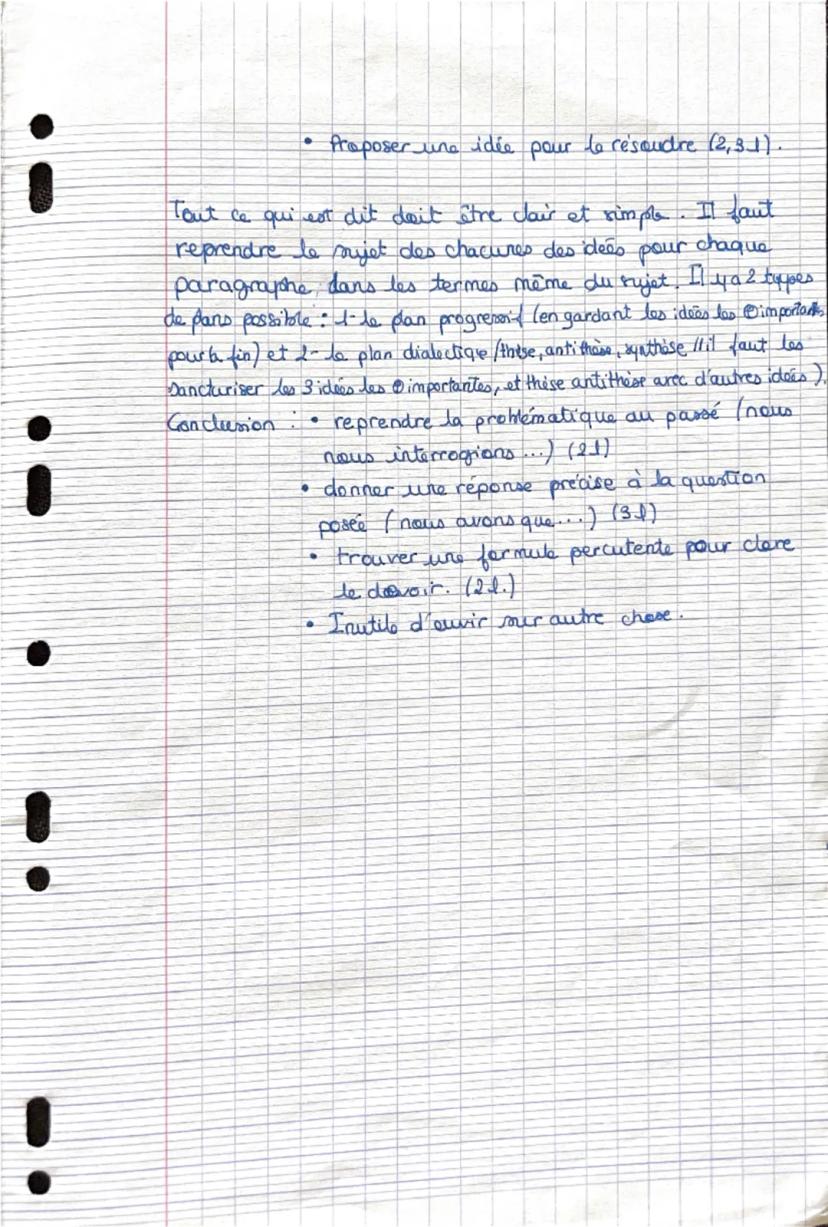 • Proposer une idée pour le résoudre (2,3 l).
Tout ce qui est dit doit être clair et simple. Il faut
reprendre le sujet des chacunes des ideés pour chaque
paragraphe, dans les termes même du sujet. Il y a 2 types
de plans possible : 1- le plan progressif (en gardant les idées les ⊕ importantes
pour la fin) et 2- le plan dialectique (thèse, antithèse, synthèse // il faut les
sancturiser les 3 idées les ⊕ importantes, et thèse antithèse avec d'autres idées).
Conclusion : • reprendre la problématique au passé (nous
nous interrogions ...) (2 l)
• donner une réponse précise à la question
posée (nous avons que...) (3 l)
• trouver une formule percutente pour clore
le devoir. (2 l.)
• Inutile d'ouvir sur autre chose.